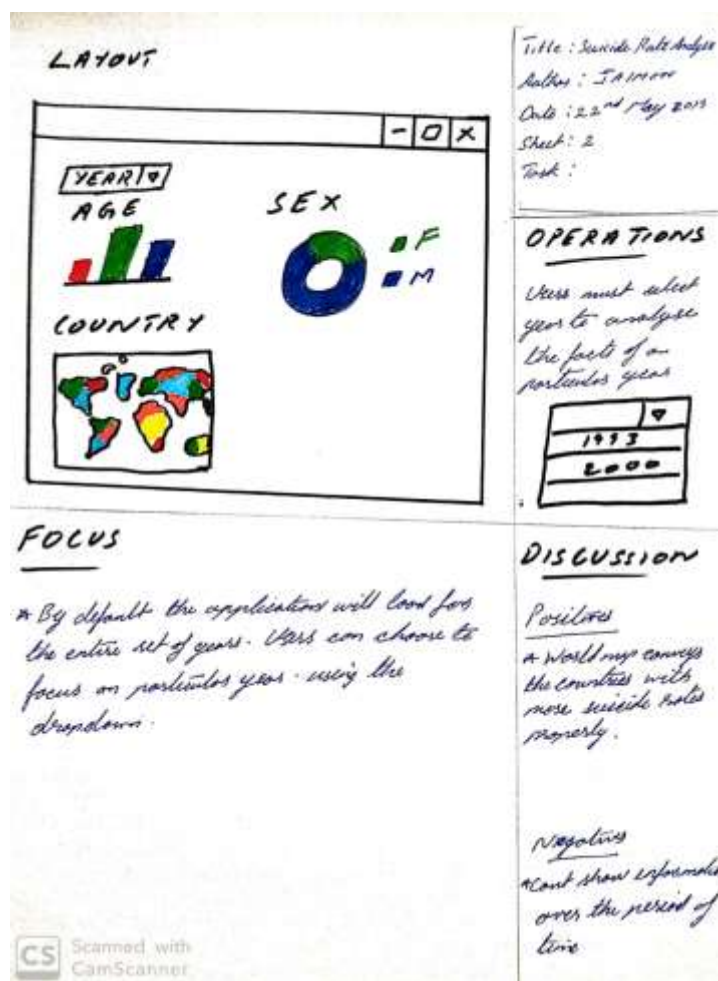 LAYOUT
YEAR
AGE
SEX
F
M
COUNTRY
Title : Suicide Rate Analysis
Author : JAIMON
Date : 22nd May 2019
Sheet : 2
Task :
OPERATIONS
Users must select
year to analyse
the facts of an
particular year
1993
2000
FOCUS
* By default the application will load for
the entire set of years. Users can choose to
focus on particular year using the
dropdown.
DISCUSSION
Positives
* World map conveys
the countries with
more suicide rates
properly.
Negatives
* Cant show
over the period of
time
CS Scanned with
CamScanner